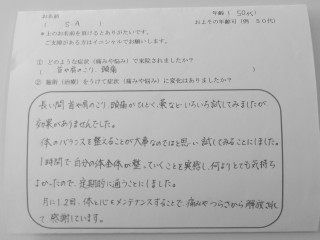 お名前
年齢 ( 50代 )
およその年齢可 (例 50代)
★上のお名前を書けるとありがたいです。
ご支障がある方はイニシャルでお願いします。
① どのような症状(痛みや悩み)で来院されましたか?
( 首や肩のこり、頭痛 )
② 施術(治療)をうけて症状(痛みや悩み)に変化はありましたか?
長い間 首や肩のこり、頭痛がひどく、薬などいろいろ試してみましたが
効果がありませんでした。
体のバランスを整えることが大事なのではと思い試してみることにしました。
1時間で自分の体全体が整っていくことを実感し、何よりとても気持ち
よかったので、定期的に通うことにしました。
月に1、2回、体と心をメンテナンスすることで、痛みやつらさから解放されて
感謝しています。